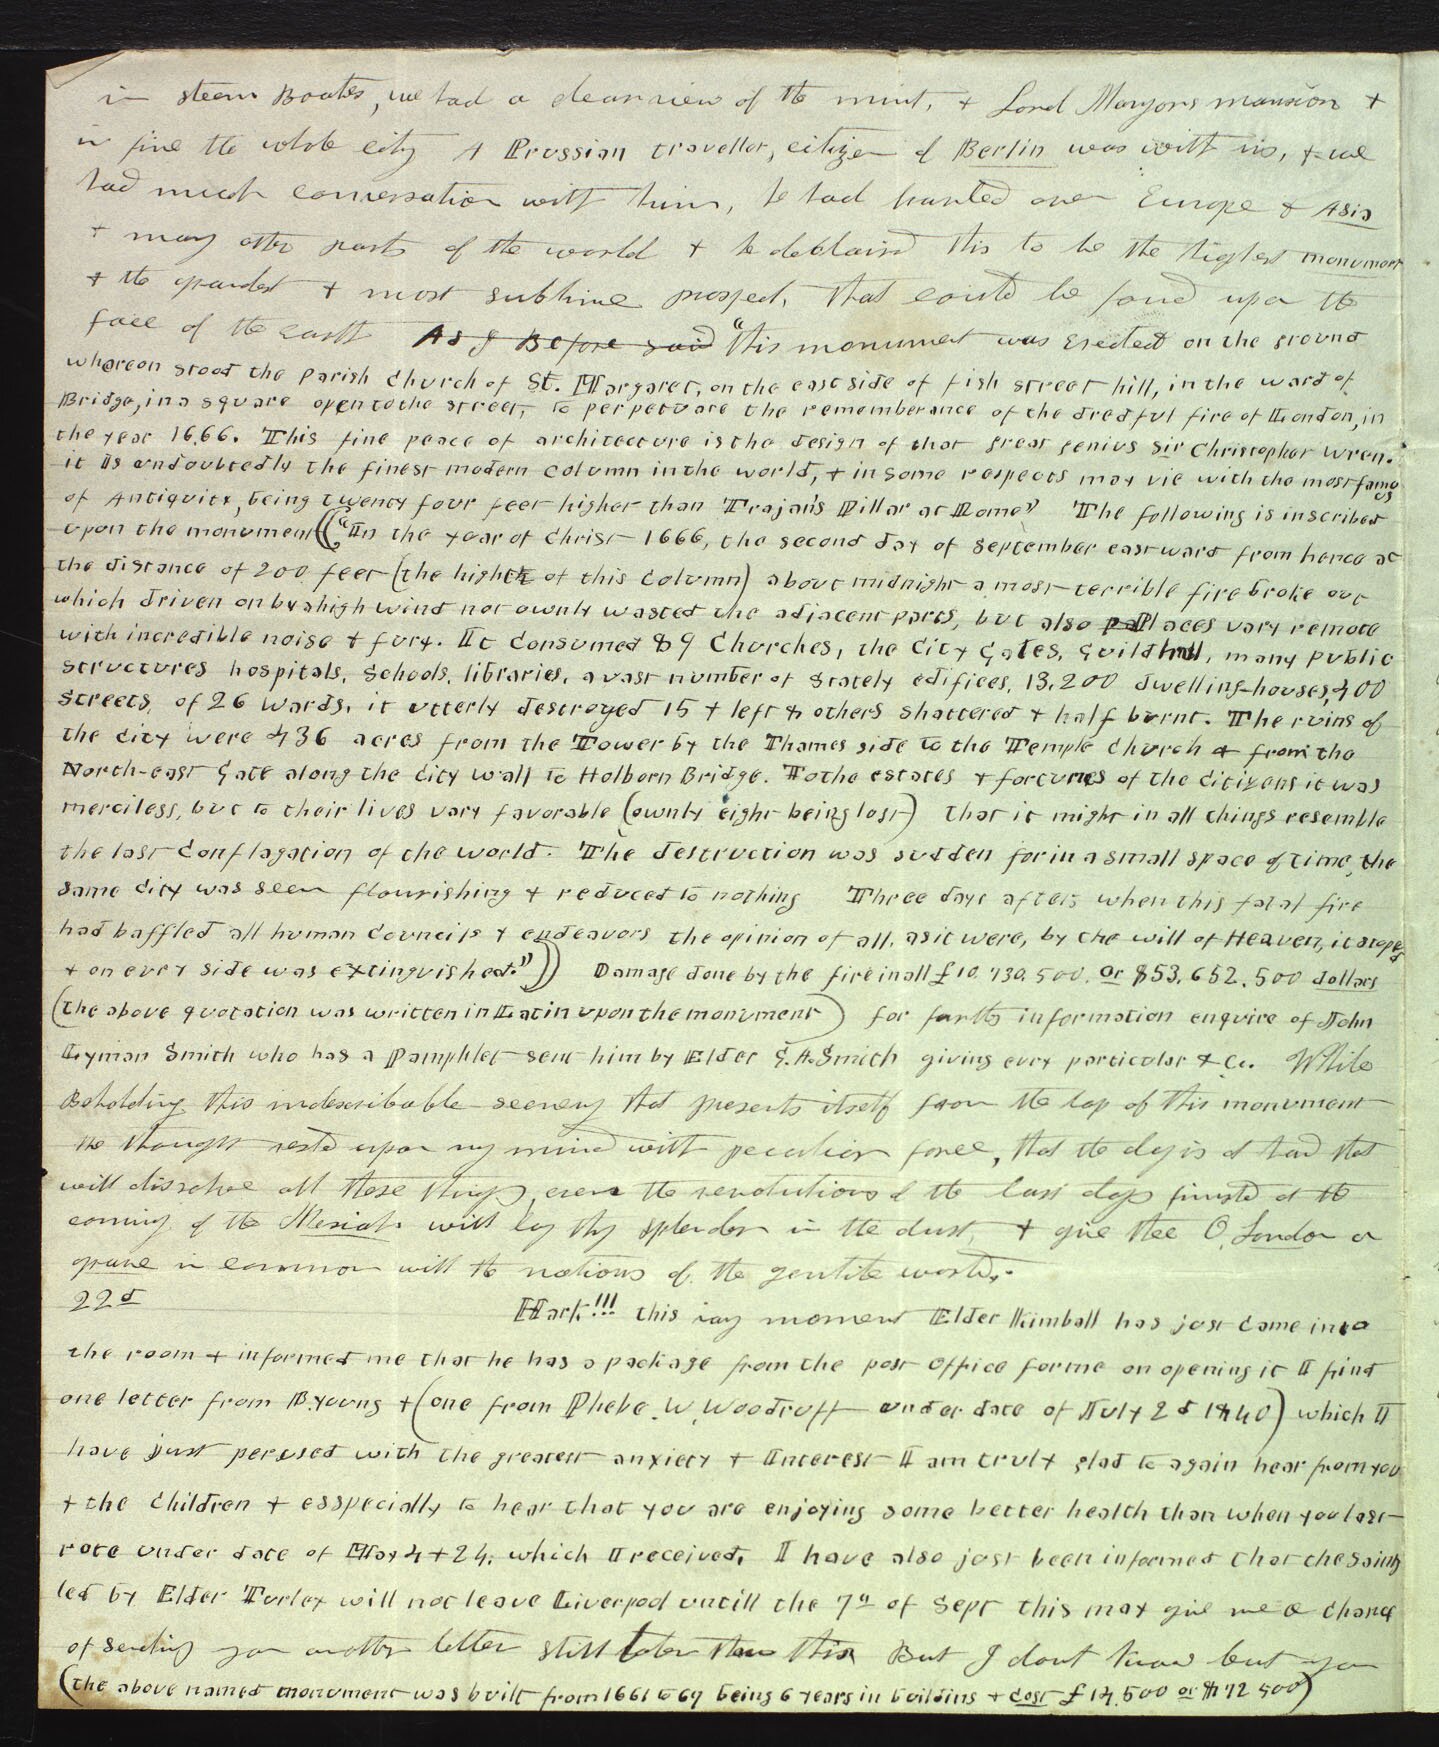 in steam Boates, we had a clear view of the mint, & Lord Mayors mansion &
in fine the whole city A Prussian traveller, citizen of Berlin was with us, & we
had much conversation with him, he had hunted over Europe & Asia
& many other parts of the world & he declaired this to be the highest monument
& the grandest & most sublime prospect, that could be found upon the
face of the earth As I Before said "this monument was erected on the ground
whareon stood the parish Church of St. Margaret, on the east side of fish street hill, in the ward of
Bridge, in a square open to the street, to perpetuate the rememberance of the dredful fire of London, in
the year 1666. This fine peace of architecture is the design of that great genius Sir Christopher Wren.
it is undoubtedly the finest modern Column in the world, & in some respects may vie with the most famous
of Antiquity, being twenty four feet higher than Trajan's Pillar at Rome" The following is inscribed
upon the monument (("In the year of Christ 1666, the second day of September eastward from hence at
the distance of 200 feet (the highth of this Column) about midnight a most terrible fire broke out
which driven on by a high wind not ownly wasted the adjacent parts, but also places vary remote
with incredible noise & fury. It Consumed 89 Churches, the City Gates, Guildhall, many public
structures hospitals, Schools, libraries, a vast number of Stately edifices, 13,200 dwelling-houses, 400
streets, of 26 wards, it utterly destroyed 15 & left 8 others shattered & half burnt. The ruins of
the City were 436 acres from the Tower by the Thames side to the Temple Church & from the
North-east Gate along the City wall to Holborn Bridge. To the estates & fortunes of the Citizens it was
merciless, but to their lives vary favorable (ownly eight being lost) that it might in all things resemble
the last Conflagation of the world. The destruction was sudden for in a small space of time, the
same City was seen flourishing & reduced to nothing Three days after, when this fatal fire
had baffled all human Councils & endeavors the opinion of all, as it were, by the will of Heaven, it stoped
& on every side was extinguished.")) Damage done by the fire in all £10,730,500, or $53,652,500 dollars
(the above quotation was written in Latin upon the monument) for further information enquire of John
Lyman Smith who has a Pamphlet sent him by Elder G. A. Smith giving evry particular &c. While
Beholding this indescribable scenery that presents itself from the top of this monument
the thought rested upon my mind with peculiar force, that the day is at hand that
will dissolve all these things, even the revolutions of the last days finished at the
coming of the Mesiah will lay thy splendor in the dust, & give thee O, London a
grave in common with the nations of the gentile world.
22d Hark!!! this vary moment Elder Kimball has just Came into
the room & informed me that he has a package from the post Office for me on opening it I find
one letter from B. Young & (one from Phebe W. Woodruff under date of July 2d 1840) which I
have just perused with the greatest anxiety & Interest I am truly glad to again hear from you
& the Children & esspecially to hear that you are enjoying some better health than when you last
rote under date of May 4 & 24, which I received, I have also just been informed that the Saints
led by Elder Turley will not leave Liverpool untill the 7th of Sept this may give me a chance
of sending you another letter still later than this But I dont know but you
(the above named monument was built from 1661 to 67 being 6 years in building & Cost £14,500 or $72 500)